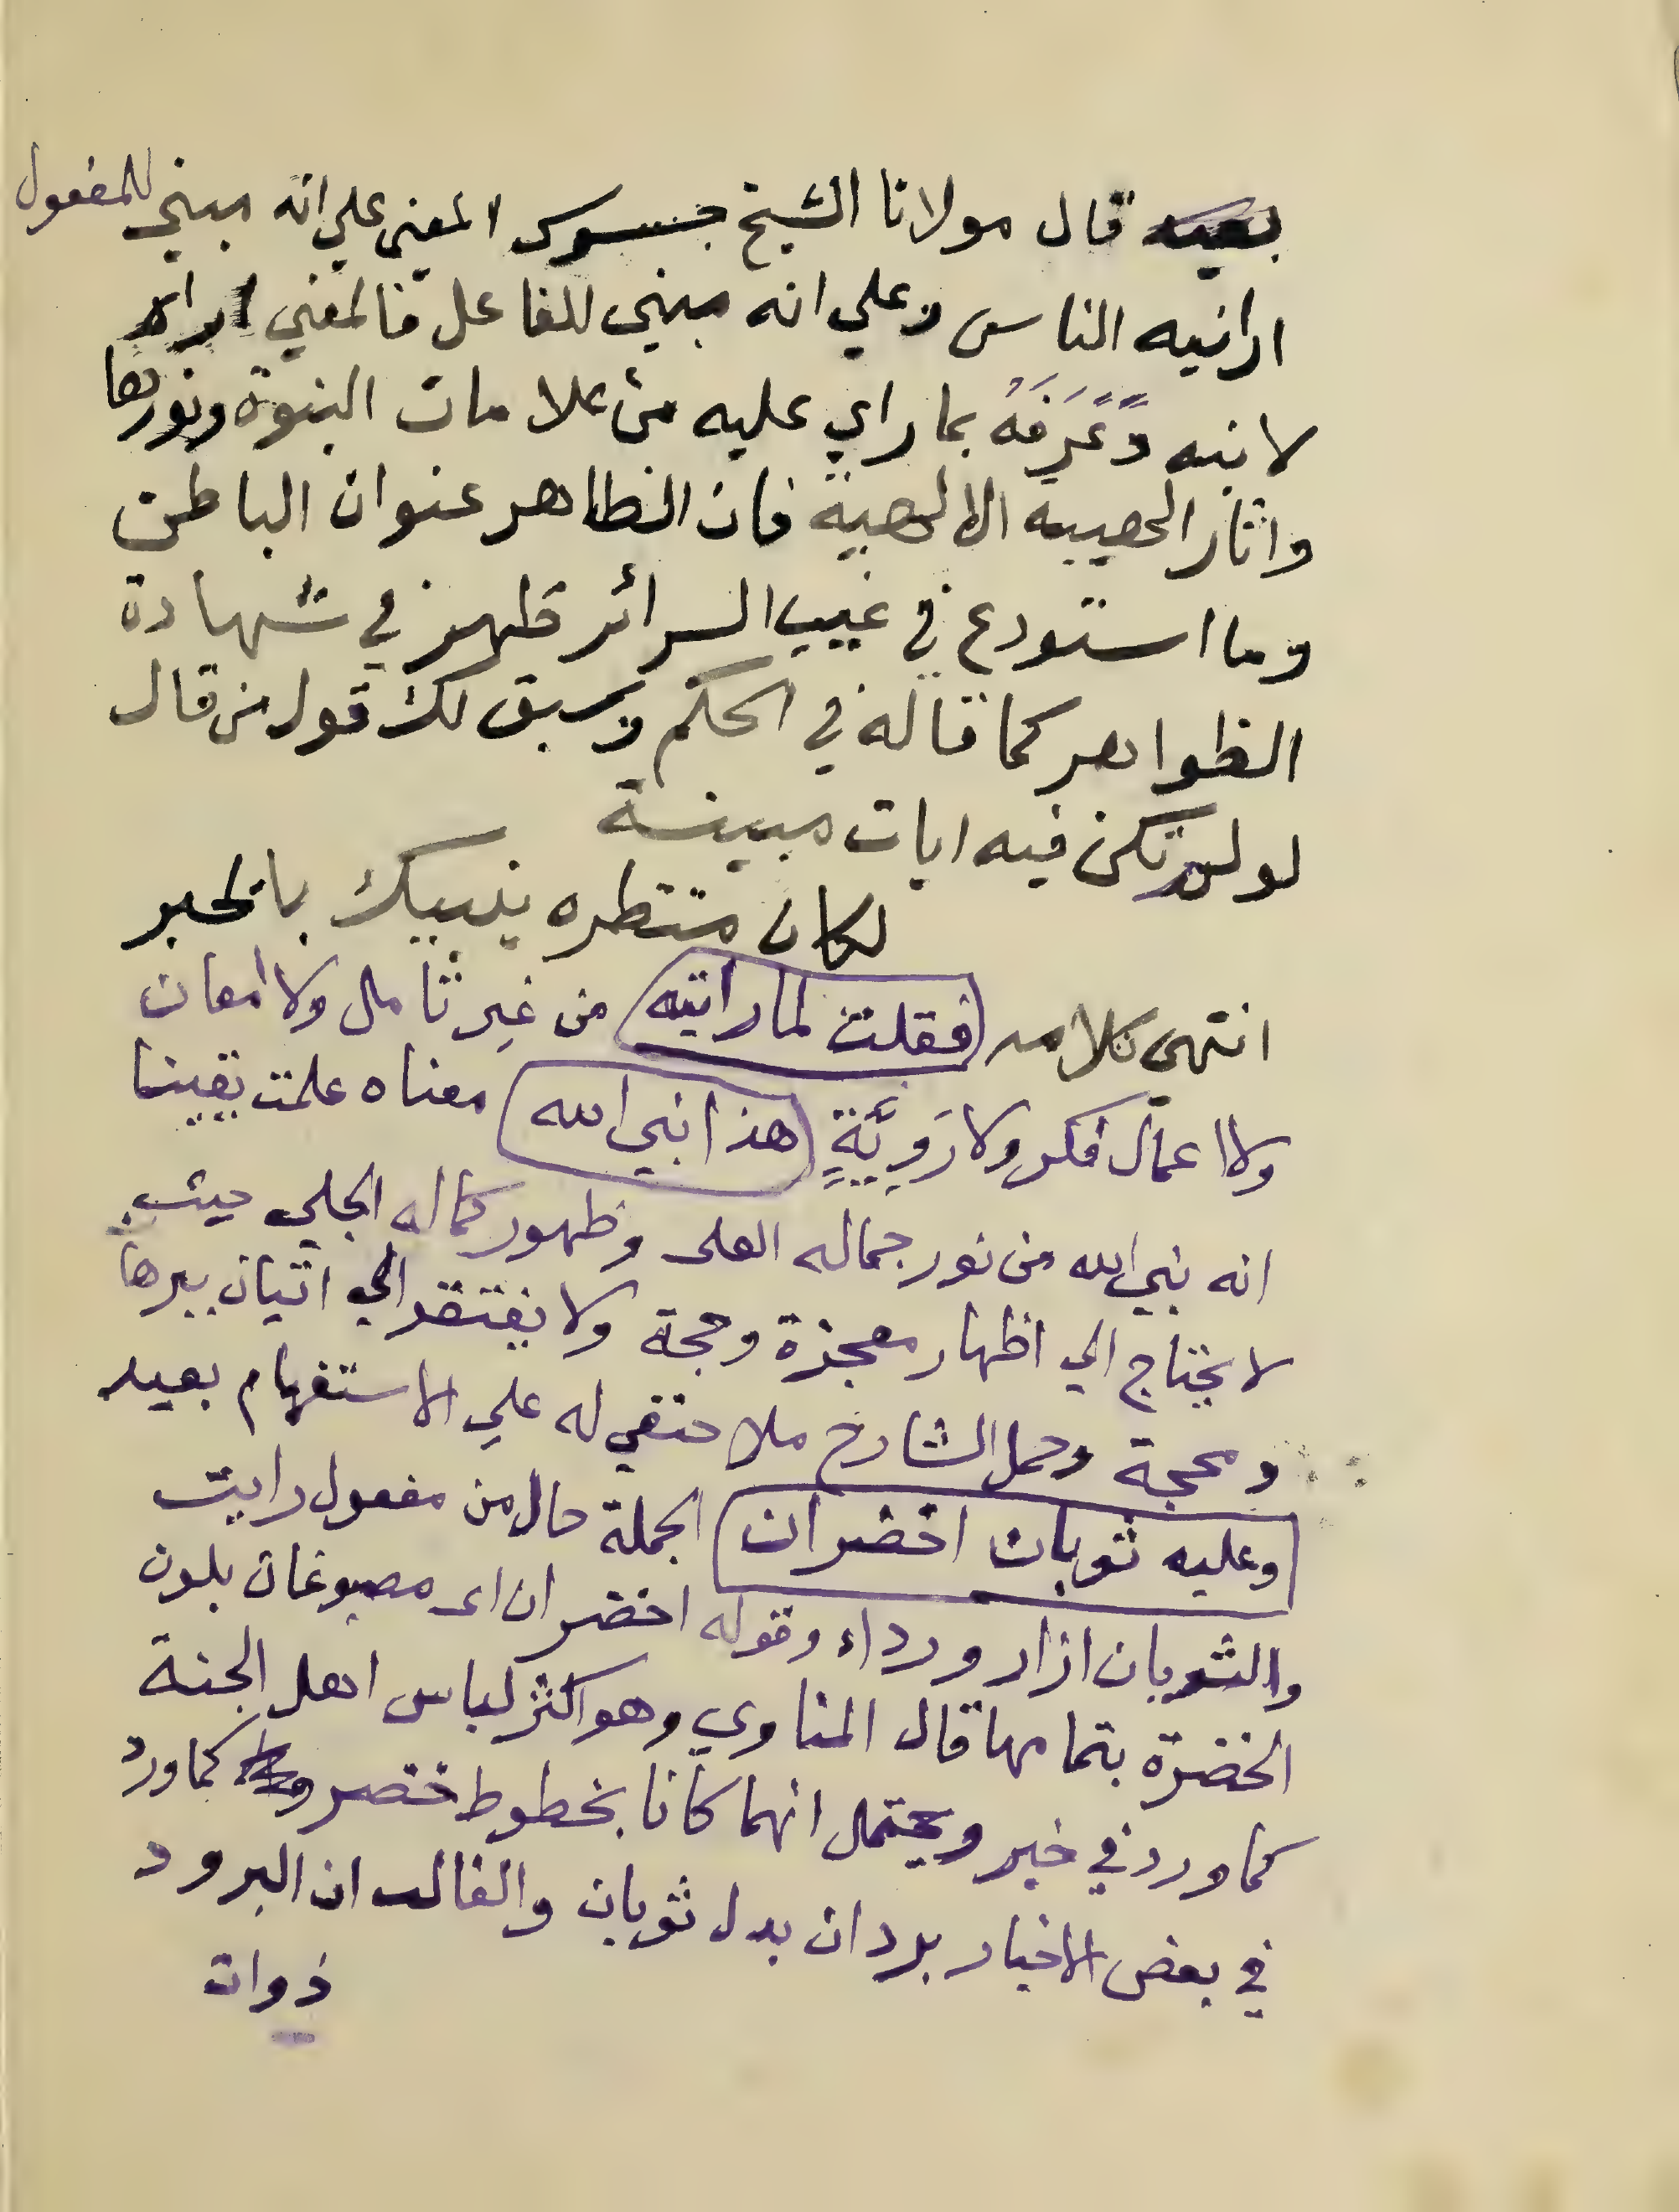 بعيه قال مولانا الشيخ جسوس المعني علي انه مبني للمفعول
ارانيه الناس وعلي انه مبني للفاعل فالمعني اراه
لابنه وَعَرَفَهُ بما راي عليه من علامات النبوة ونورها
واثار الهيبه الالهية فان الظاهر عنوان الباطن
وما استودع في غيب السرائر ظهر في شهادة
الظواهر كما قاله في الحكم وسبق لك قول من قال
لو لم تكن فيه ايات مبينة
لكان منتظره ينبيك بالخبر
انتهي كلامه فقلت لما رايته من غير تامل ولا امعان
ولا اعمال فكر ولا رَوِيَّةٍ هذا نبي الله معناه علمت يقينا
انه نبي الله من نور جماله العلى وظهور كماله الجلي حيث
لا يحتاج الي اظهار معجزة وحجة ولا يفتقر الي اتيان ببرها
ومحجة وحمل الشارح ملا حنفي له علي الاستفهام بعيد
وعليه ثوبان اخضران الجملة حال من مفعول رايت
والثوبان ازار ورداء وقوله اخضران اى مصبوغان بلون
الخضرة بتمامها قال المناوي وهو اكثر لباس اهل الجنة
كما ورد في خبر ويحتمل انهما كانا بخطوط خضر كما ورد
في بعض الاخبار بردان بدل ثوبان والغالب ان البرود
ذوات